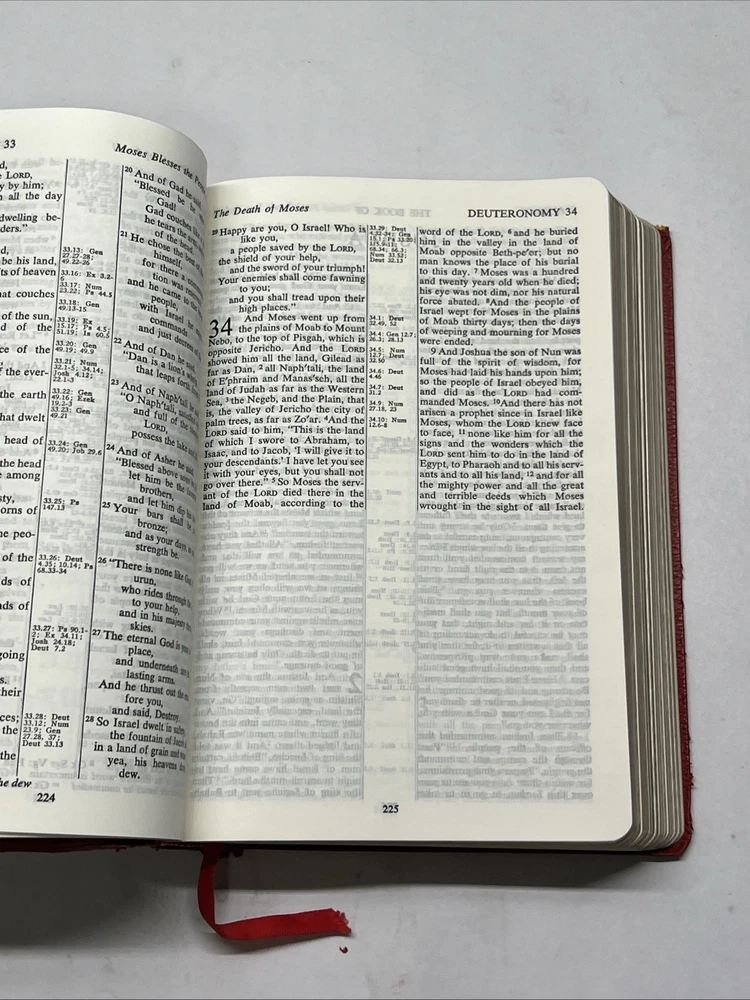 33
Moses Blesses the
d,
LORD,
y by him;
n all the day
dwelling be-
ders."
d,
be his land,
ts of heaven
hat couches
of the sun,
d of the
ce of the
f the ever-
the earth
hat dwelt
head of
the head
among
sty,
orns of
he peo-
of the
ds of
nds of
going
their
ces;
the
he dew
33.13: Gen
27.27-28;
49.22-26
33.16: Ex 3.2-
6
33.17: Num
23.22; Ps 44.5
33.18: Gen
49.13-15
33.19: Ex
15.17; Ps 4.5;
51.19; Is 60.5
33.20: Gen
49.19; 49.9
33.21: Num
32.1-5; 34.14;
Josh 4.12;
22.1-3
33.22: Gen
49.16; Ezek
19.2-3
33.23: Gen
49.21
33.24: Gen
49.20; Job 29.6
33.25: Ps
147.13
33.26: Deut
4.35; 10.14; Ps
68.33-34
33.27: Ps 90.1-
2; Ex 34.11;
Josh 24.18;
Deut 7.2
33.28: Deut
33.12; Num
23.9; Gen
27.28, 37;
Deut 33.13
20 And of Gad he said,
"Blessed be he
Gad!
Gad couches
he tears the arm
of the head
21 He chose the best of
himself,
for there a
tion was
and he came to the
people,
with Israel he
commands
and just decrees
22 And of Dan he said,
"Dan is a lion's
that leaps forth
23 And of Naph'tali he said,
"O Naph'tali,
and full of the
LORD,
possess the lake
24 And of Asher he said,
"Blessed above
let him be the
brothers,
and let him dip
25 Your bars shall be
bronze;
and as your days,
strength be.
26 "There is none like God,
urun,
who rides through
to your help,
and in his majesty
skies.
27 The eternal God is your
place,
and underneath are
lasting arms.
And he thrust out the
fore you,
and said, Destroy.
28 So Israel dwelt in safety,
the fountain of Jacob
in a land of grain and
yea, his heavens
dew.
224
The Death of Moses
DEUTERONOMY 34
29 Happy are you, O Israel! Who is
like you,
a people saved by the LORD,
the shield of your help,
and the sword of your triumph!
Your enemies shall come fawning
to you;
and you shall tread upon their
high places."
34 And Moses went up from
the plains of Moab to Mount
Nebo, to the top of Pisgah, which is
opposite Jericho. And the LORD
showed him all the land, Gilead as
far as Dan, 2 all Naph'tali, the land
of E'phraim and Manas'seh, all the
land of Judah as far as the Western
Sea, 3 the Negeb, and the Plain, that
is, the valley of Jericho the city of
palm trees, as far as Zo'ar. 4 And the
LORD said to him, "This is the land
of which I swore to Abraham, to
Isaac, and to Jacob, 'I will give it to
your descendants.' I have let you see
it with your eyes, but you shall not
go over there." 5 So Moses the serv-
ant of the LORD died there in the
land of Moab, according to the
33.29: Deut
4.32-34; Gen
15.1; Ps 33.20;
115.9-11;
68.34; 66.3;
Num 33.52;
Deut 32.13
34.1: Deut
32.49, 52
34.4: Gen 12.7;
26.3; 28.13
34.5: Num
12.7; Deut
32.50
34.6: Deut
4.46
34.7: Deut
31.2
34.9: Num
27.18, 23
34.10: Num
12.6-8
word of the LORD, 6 and he buried
him in the valley in the land of
Moab opposite Beth-pe'or; but no
man knows the place of his burial
to this day. 7 Moses was a hundred
and twenty years old when he died;
his eye was not dim, nor his natural
force abated. 8 And the people of
Israel wept for Moses in the plains
of Moab thirty days; then the days
of weeping and mourning for Moses
were ended.
9 And Joshua the son of Nun was
full of the spirit of wisdom, for
Moses had laid his hands upon him;
so the people of Israel obeyed him,
and did as the LORD had com-
manded Moses. 10 And there has not
arisen a prophet since in Israel like
Moses, whom the LORD knew face
to face, 11 none like him for all the
signs and the wonders which the
LORD sent him to do in the land of
Egypt, to Pharaoh and to all his serv-
ants and to all his land, 12 and for all
the mighty power and all the great
and terrible deeds which Moses
wrought in the sight of all Israel.
225